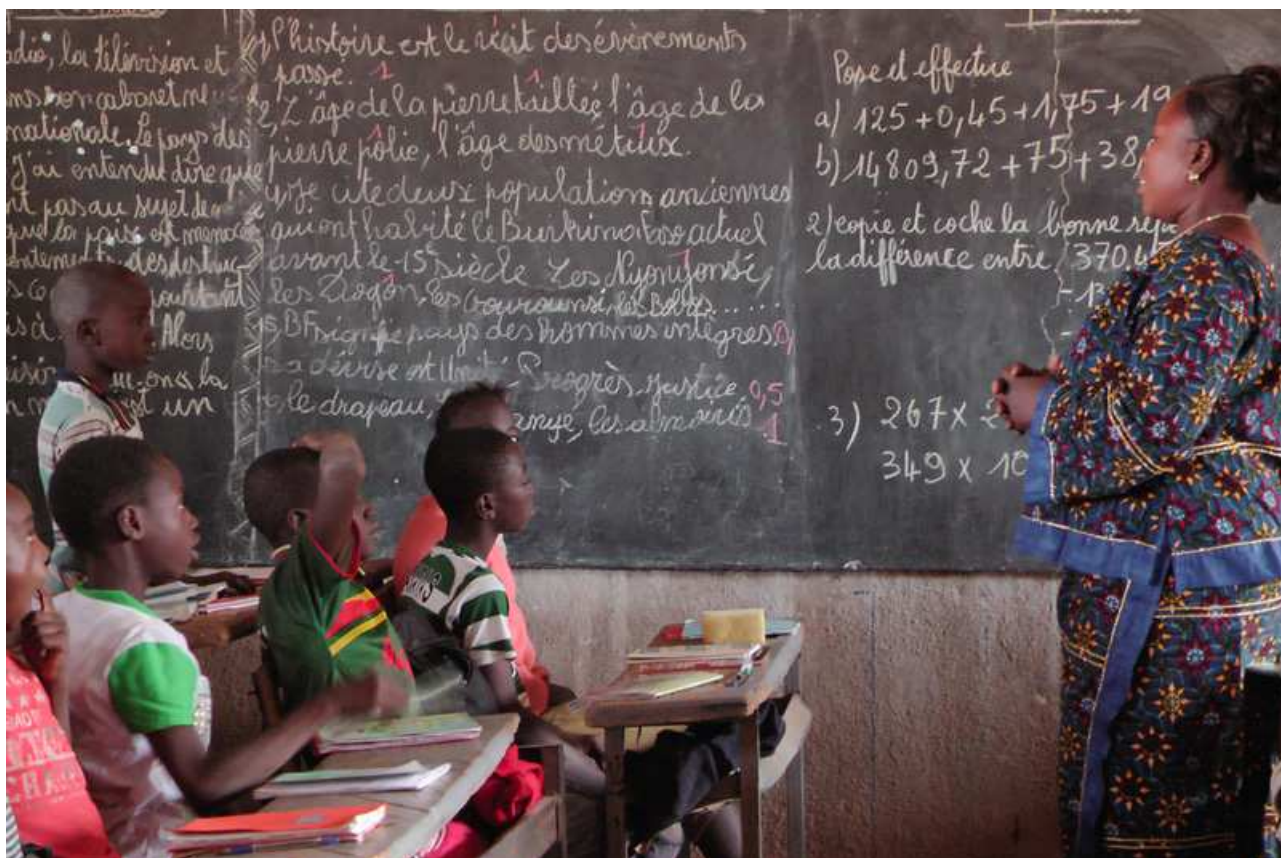 adio, la télévision et
ans son cabaret ne
nationale. Le pays des
J'ai entendu dire que
nt pas au sujet de
que la paix est menacée
des destruc-
pourtant
Alors
-on la
est un
1, l'histoire est le récit des évènements
passe. 1
2, L'âge de la pierre taillée, l'âge de la
pierre polie, l'âge des métaux.
4, Je cite deux populations anciennes
qui ont habité le Burkina Faso actuel
avant le 15e siècle Les Nyonyonsé,
les Dogon, les Gourounsi, les Bobos.....
5, BF signifie pays des hommes intègres. 0,
sa devise est Unité, Progrès, Justice. 0,5
le drapeau, , les armoiries 1
Pose et effectue
a) 125 + 0,45 + 1,75 + 19
b) 14809,72 + 75 + 38,
2) copie et coche la bonne répo
la différence entre 370,4
- 1
3) 267 x 2
349 x 10